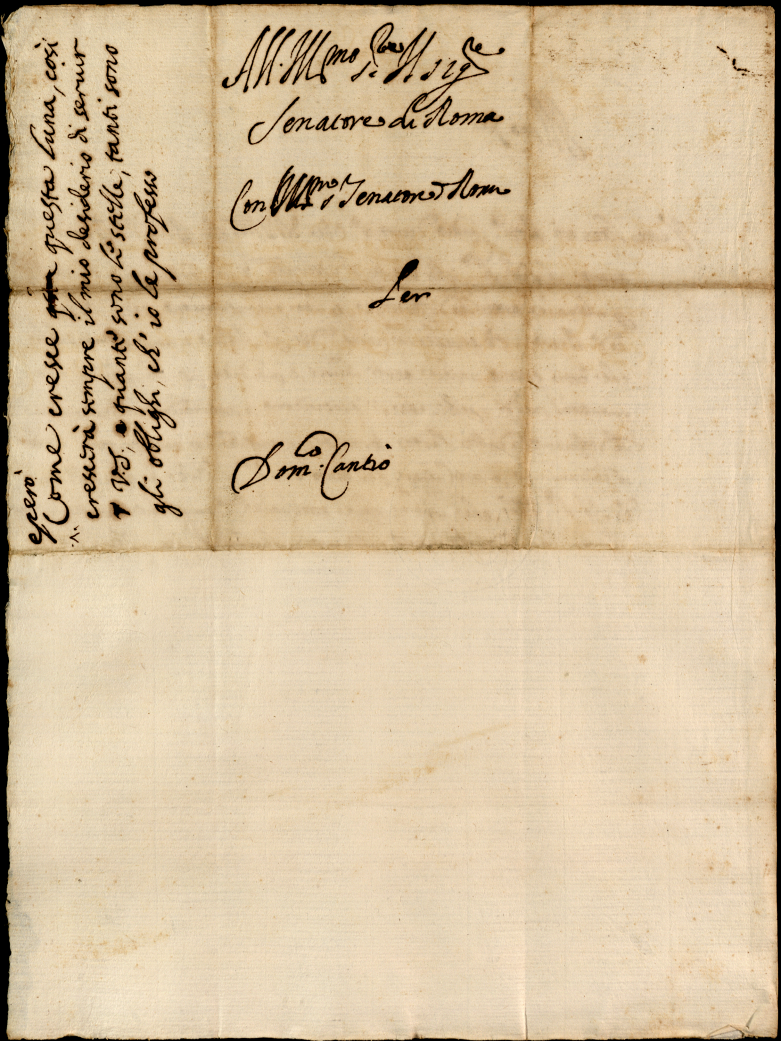 All Ill.mo Sre il Sig.re
Senatore di Roma
Con Ill.mo S.r Senatore d Roma
Per
Dom.co Cantio
sperò
Come cresce questa luna, così
crescerà sempre il mio desiderio di seruir
V.S. e quante sono le stelle, tanti sono
gli oblighi, ch' io le professo